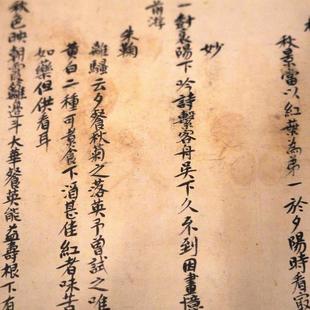 秋景當以紅葉為弟一於夕陽時看寂
妙
一對襄陽下吟詩繫客舟吳下久不到因畫憶
前游
朱鞠
離騷云夕餐秋菊之落英予曾試之唯
黃白二種可煮食下酒甚佳紅者味苦
如藥但供看耳
秋色映朝霞籬邊斗大華餐英能益壽根下有